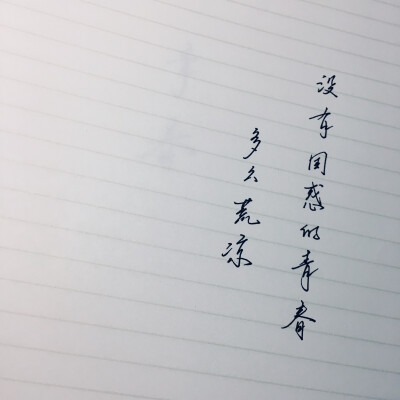 没有困惑的青春
多么荒凉